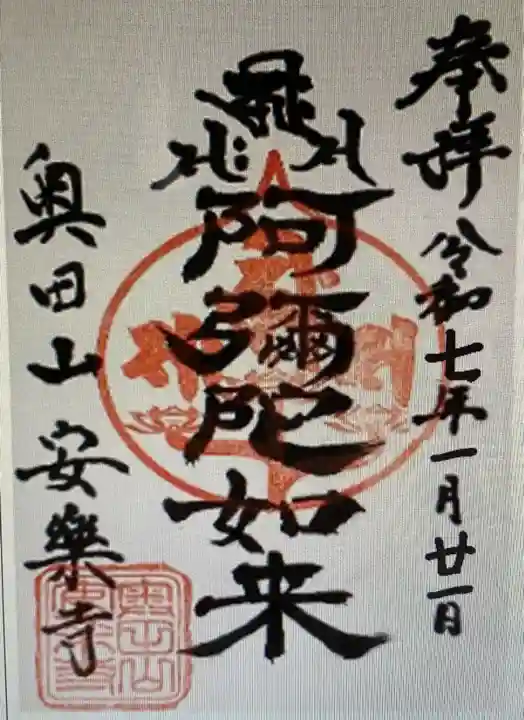 奉拝 令和七年一月廿一日
阿彌陀如来
奥田山 安樂寺